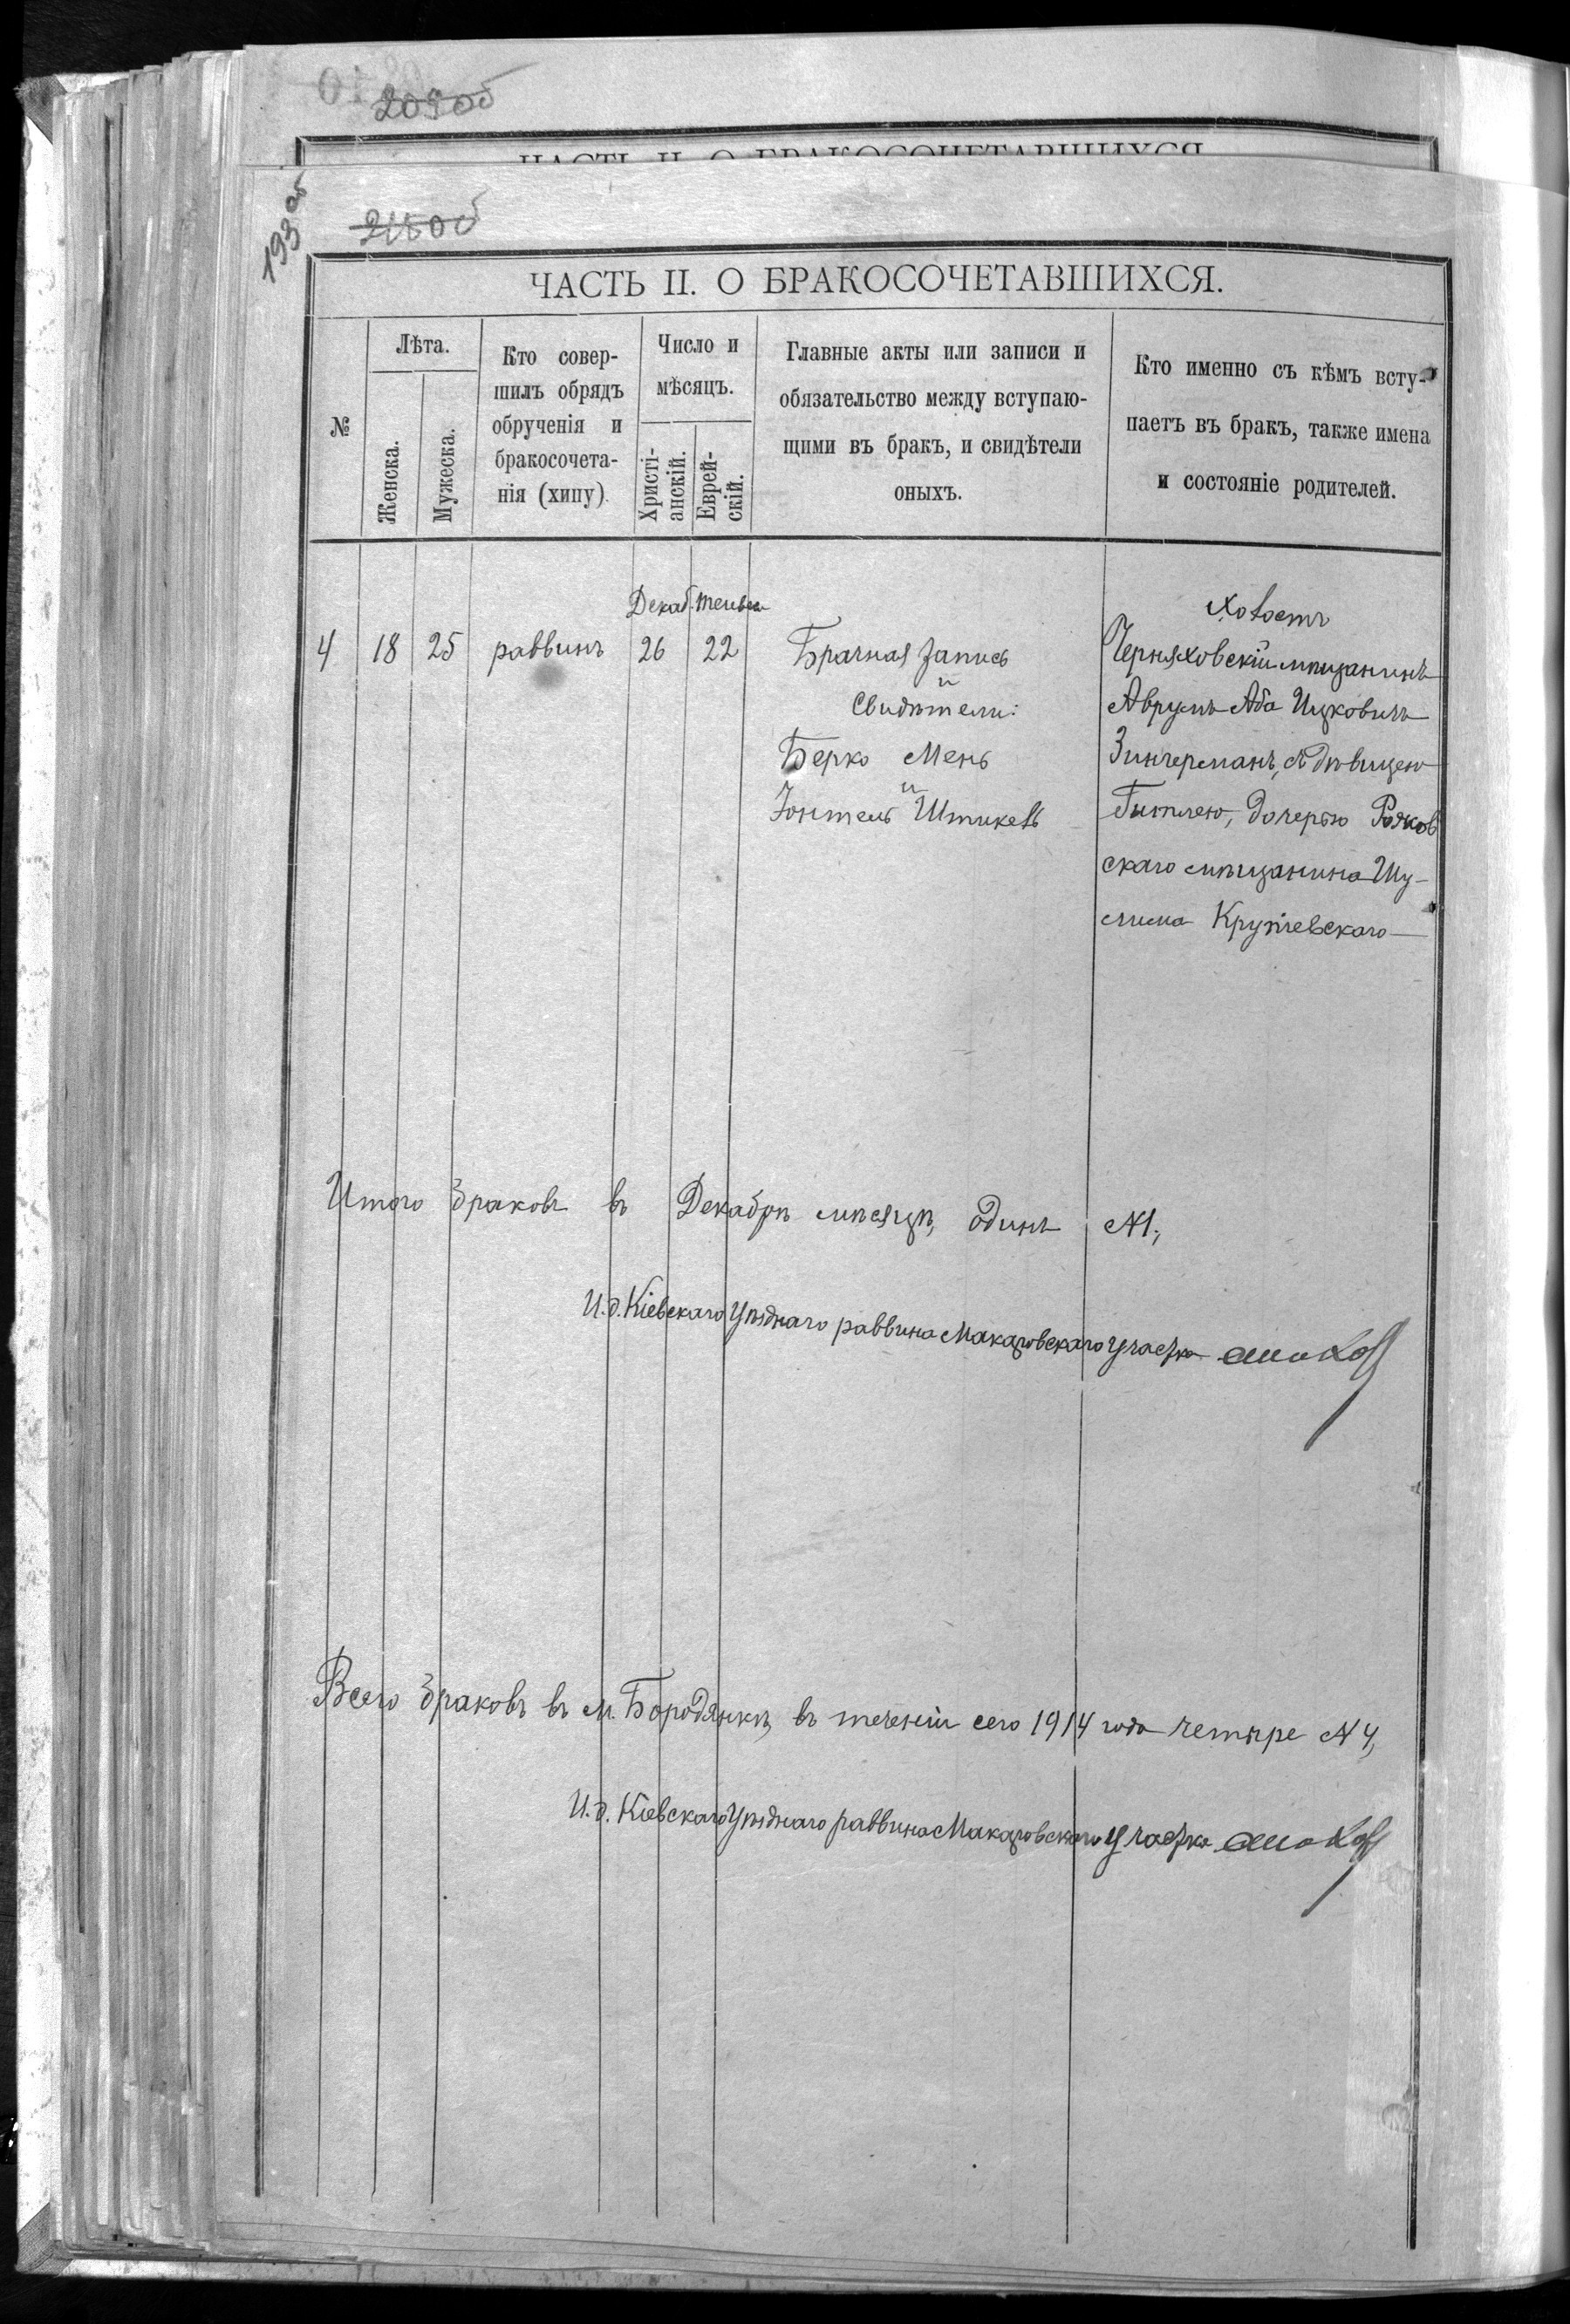 205об
ЧАСТЬ II. О БРАКОСОЧЕТАВШИХСЯ
193 об
ЧАСТЬ II. О БРАКОСОЧЕТАВШИХСЯ.
№
Лѣта.
Женска.
Мужеска.
Кто совер-
шилъ обрядъ
обрученія и
бракосочета-
нія (хипу).
Число и
мѣсяцъ.
Христі-
анскій.
Еврей-
скій.
Главные акты или записи и
обязательство между вступаю-
щими въ бракъ, и свидѣтели
оныхъ.
Кто именно съ кѣмъ всту-
паетъ въ бракъ, также имена
и состояніе родителей.
Декаб. Тейвеса
4 18 25 раввинъ 26 22
Брачная запись
и
Свидѣтели:
Берко Мень
и
Іонтель
Холостъ
Черняховскій мѣщанинъ
Аврумъ Аба Ицковичъ
Зингерманъ, съ дѣвицею
Гитлею, дочерью
скаго мѣщанина Шу-
лима
Итого браковъ въ Декабрѣ мѣсяцѣ, одинъ №1;
И.д. Кіевскаго Уѣзднаго раввина Макаровскаго участка
Всего браковъ въ м. Бородянкѣ, въ теченіи сего 1914 года четыре №4,
И.д. Кіевскаго Уѣзднаго раввина Макаровскаго участка